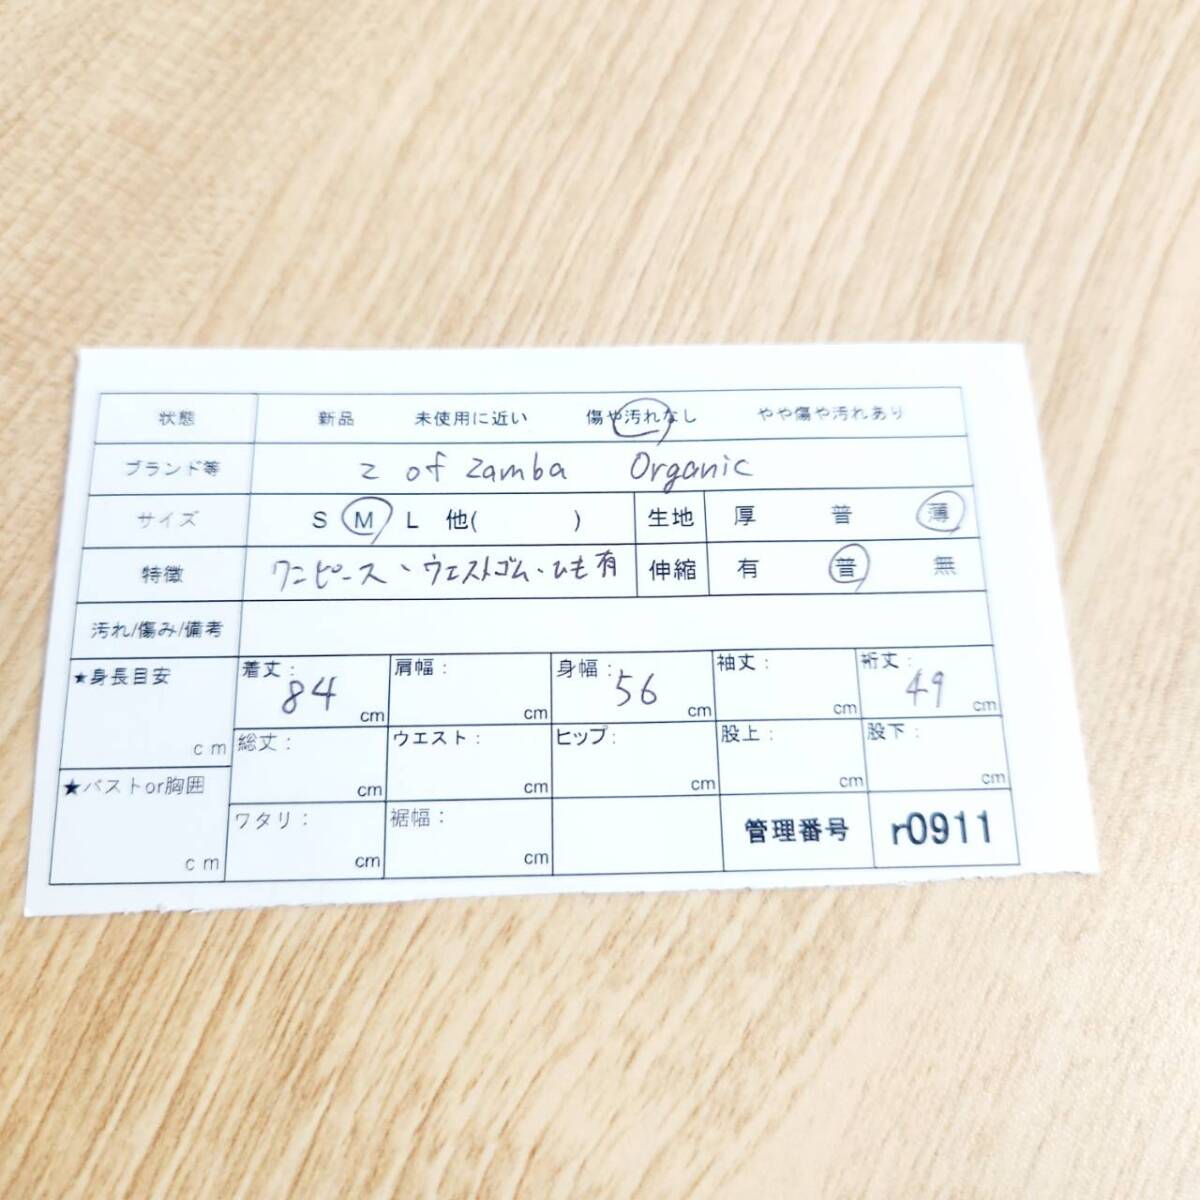 状態 新品 未使用に近い 傷や汚れなし やや傷や汚れあり
ブランド等 z of zamba Organic
サイズ S M L 他( ) 生地 厚 普 薄
特徴 ワンピース、ウエストゴム・ひも有 伸縮 有 普 無
汚れ/傷み/備考
★身長目安 cm
着丈: 84 cm 肩幅: cm 身幅: 56 cm 袖丈: cm 裄丈: 49 cm
総丈: cm ウエスト: cm ヒップ: cm 股上: cm 股下: cm
★バストor胸囲 cm
ワタリ: cm 裾幅: cm 管理番号 r0911